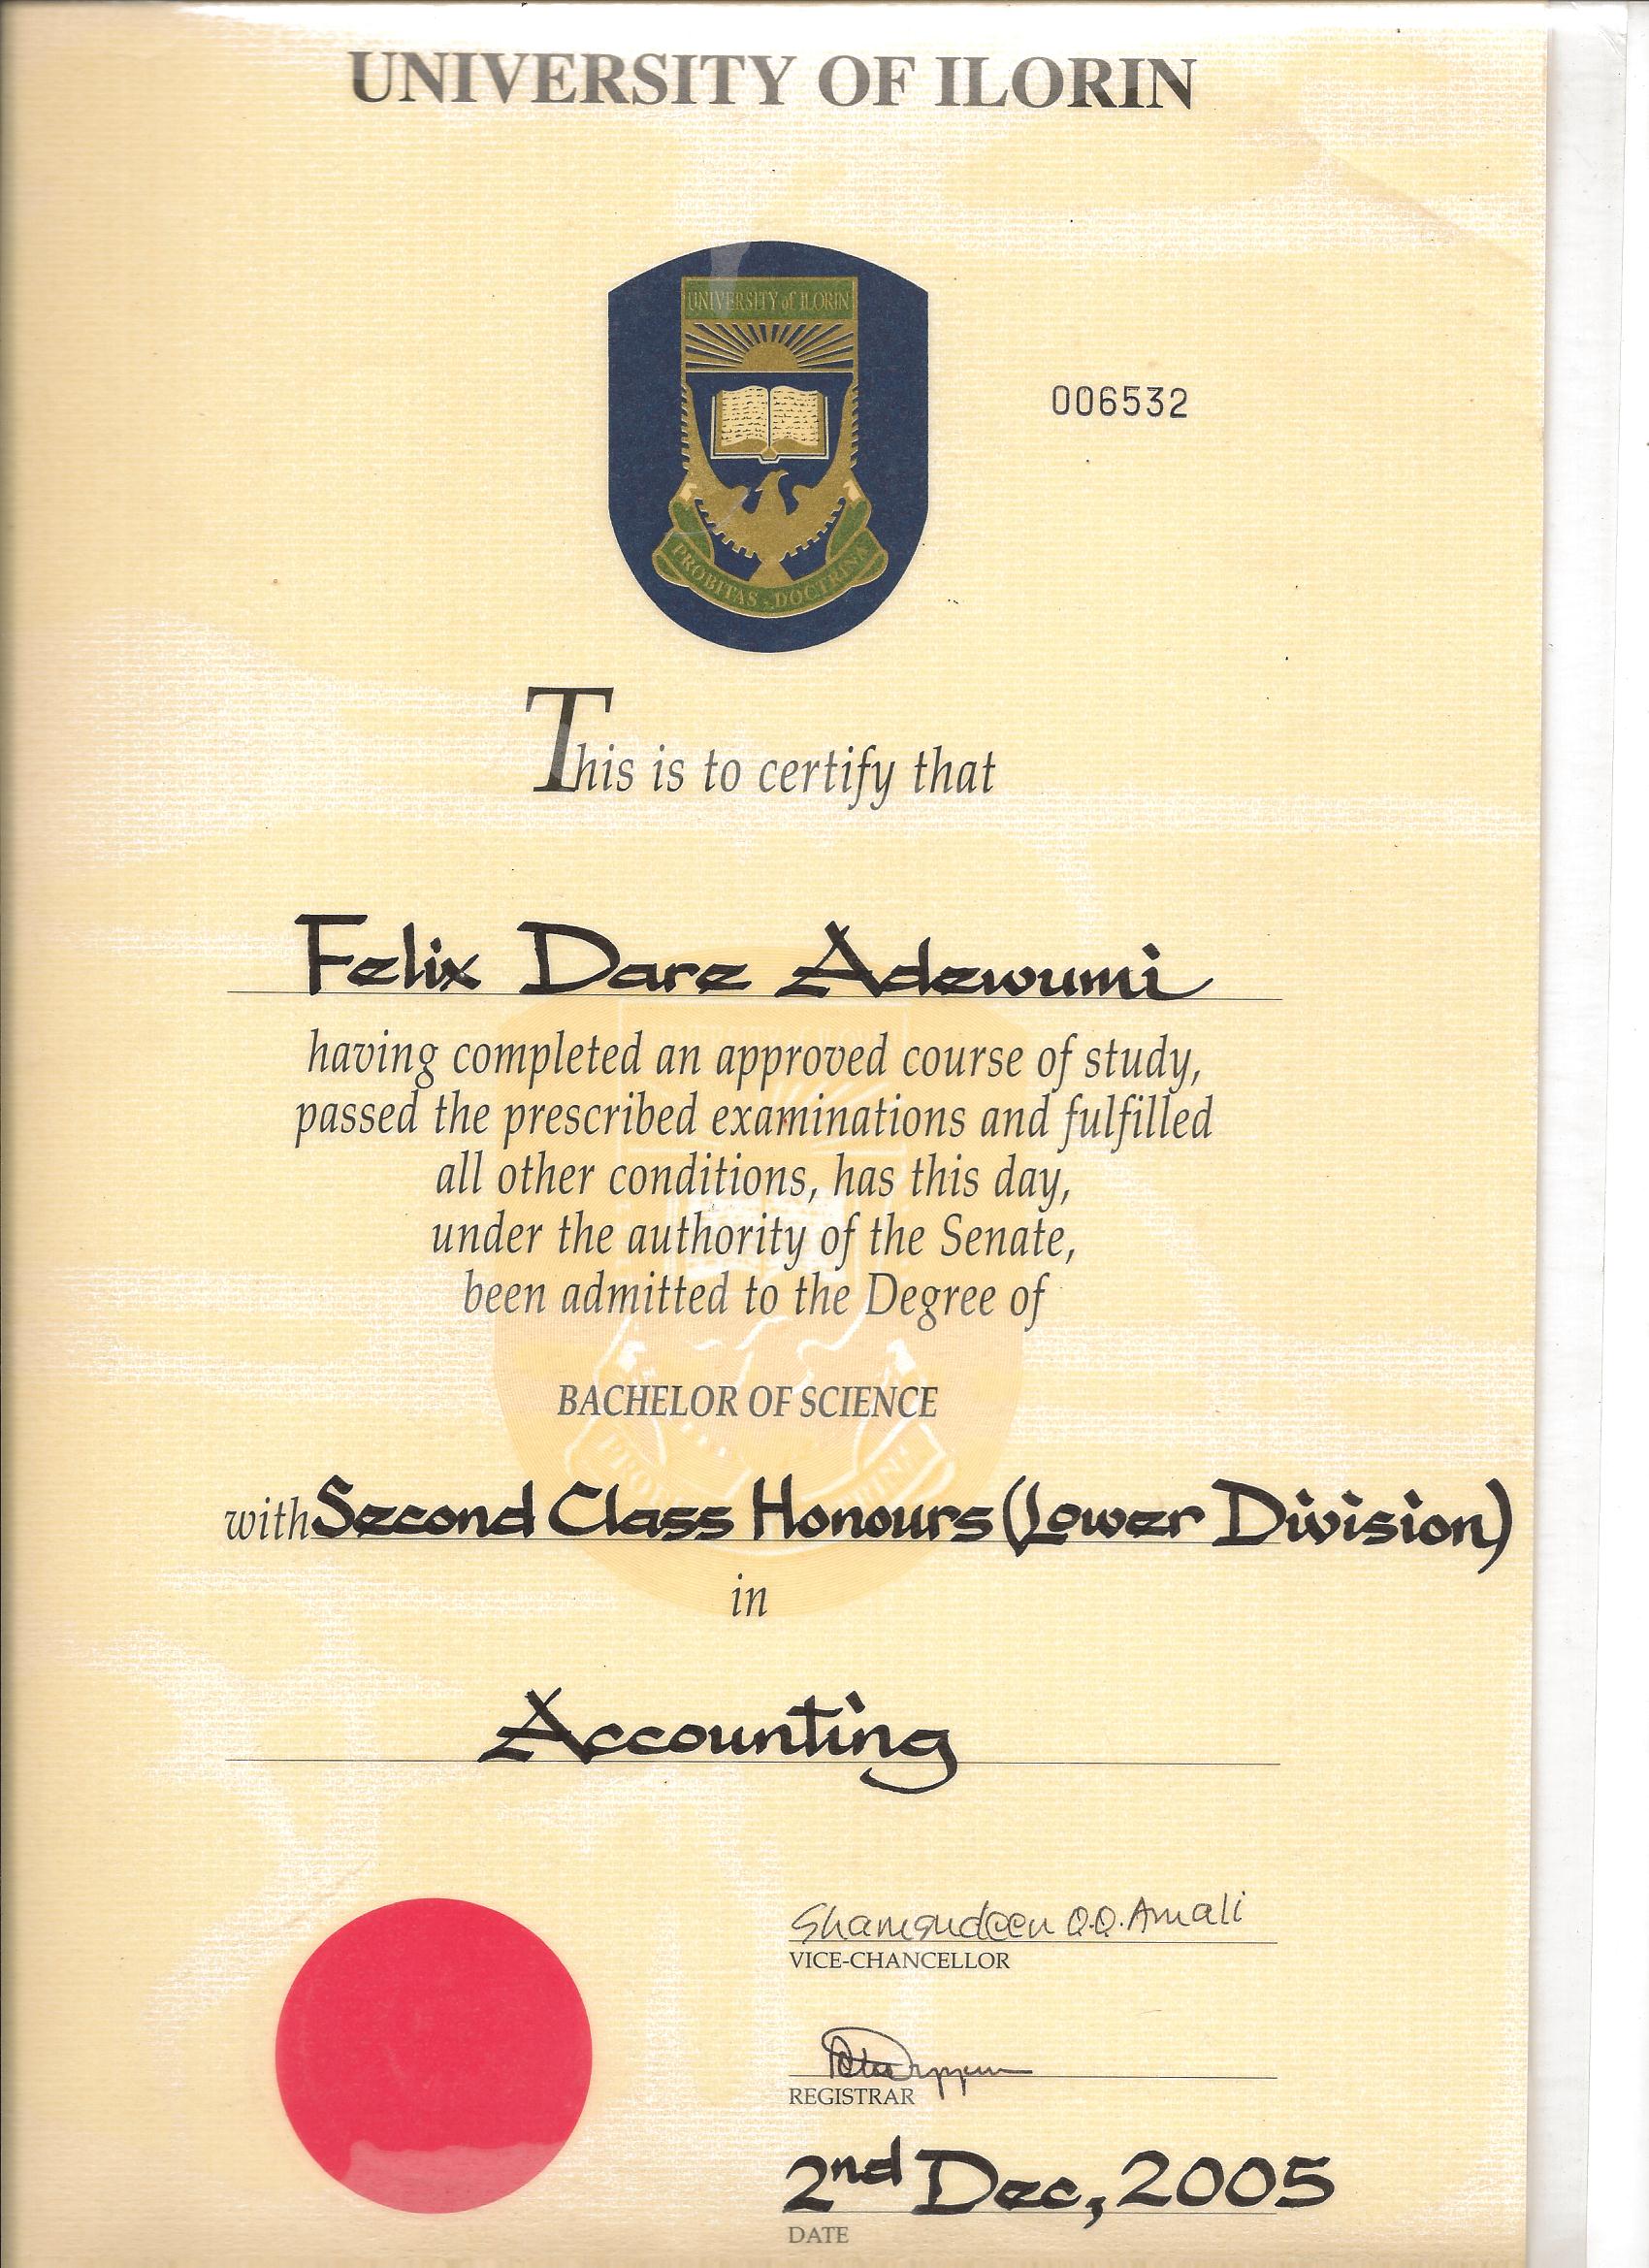 UNIVERSITY OF ILORIN
UNIVERSITY of ILORIN
006532
PROBITAS - DOCTRINA
This is to certify that
Felix Dare Adewumi
having completed an approved course of study,
passed the prescribed examinations and fulfilled
all other conditions, has this day,
under the authority of the Senate,
been admitted to the Degree of
BACHELOR OF SCIENCE
with Second Class Honours (Lower Division)
in
Accounting
Shamsudeen O.O. Amali
VICE-CHANCELLOR
REGISTRAR
2nd Dec, 2005
DATE